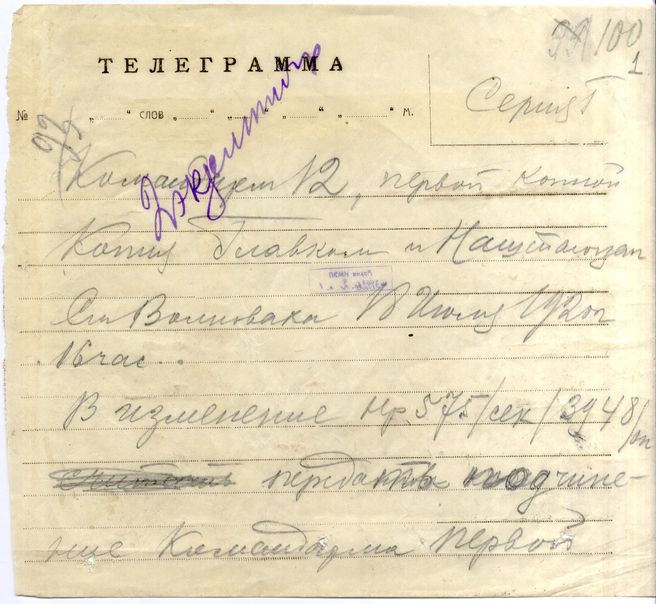 99/100
1
ТЕЛЕГРАММА
Серия Г
№ „ “ слов „ “ „ “ „ “ м.
Командарм 12, первой конной
Копия Главком и Наштаюзап
Ст Волноваха 18 Июля 1920г
16 час..
В изменение нр 575/сек/3948/оп
передать в подчине-
ние Командарма первой